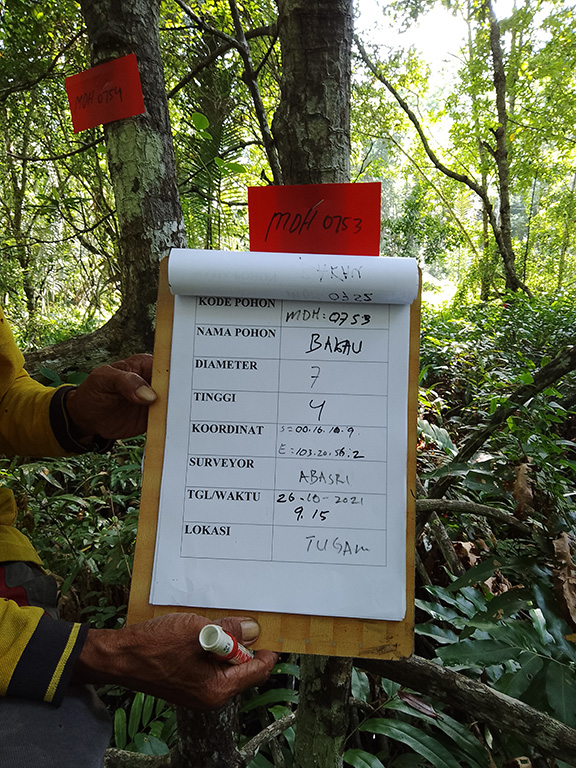 MDH 0754
MDH 0753
0325
KODE POHON MDH:0753
NAMA POHON BAKAU
DIAMETER 7
TINGGI 4
KOORDINAT S=00.16.10.9
E=103.20.56.2
SURVEYOR ABASRI
TGL/WAKTU 26-10-2021
9.15
LOKASI TUGAM